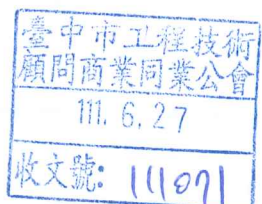 臺中市工程技術
顧問商業同業公會
111. 6. 27
收文號: 111071